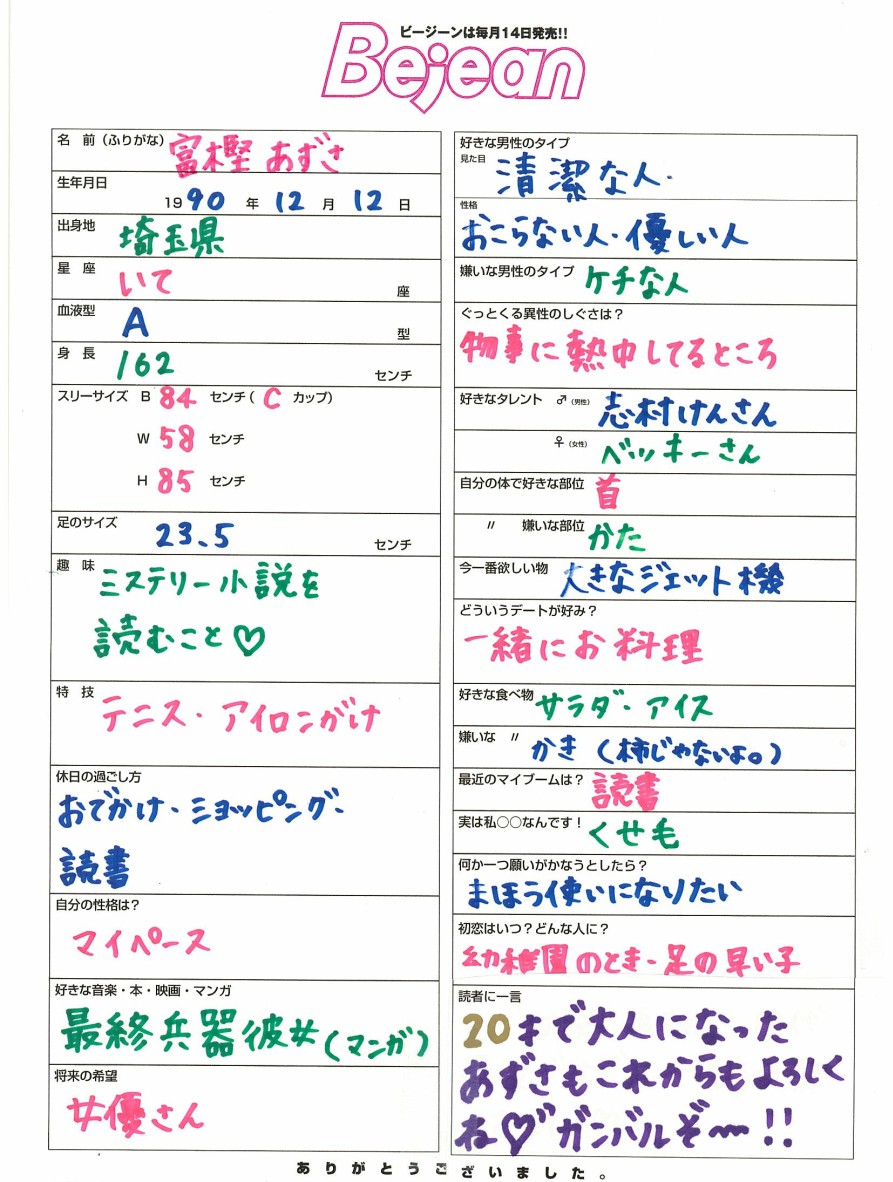 ビージーンは毎月14日発売!!
Bejean
名　前（ふりがな） 富樫 あずさ
生年月日
1990 年 12 月 12 日
出身地 埼玉県
星　座 いて 座
血液型 A 型
身　長 162 センチ
スリーサイズ B 84 センチ( C カップ)
W 58 センチ
H 85 センチ
足のサイズ 23.5 センチ
趣　味 ミステリー小説を
読むこと♡
特　技 テニス・アイロンがけ
休日の過ごし方
おでかけ・ショッピング・
読書
自分の性格は？
マイペース
好きな音楽・本・映画・マンガ
最終兵器彼女(マンガ)
将来の希望
女優さん
好きな男性のタイプ
見た目 清潔な人・
性格
おこらない人・優しい人
嫌いな男性のタイプ ケチな人
ぐっとくる異性のしぐさは？
物事に熱中してるところ
好きなタレント ♂（男性） 志村けんさん
♀（女性） ベッキーさん
自分の体で好きな部位 首
〃 嫌いな部位 かた
今一番欲しい物 大きなジェット機
どういうデートが好み？
一緒にお料理
好きな食べ物 サラダ・アイス
嫌いな 〃 かき (柿じゃないよ。)
最近のマイブームは？ 読書
実は私○○なんです！ くせ毛
何か一つ願いがかなうとしたら？
まほう使いになりたい
初恋はいつ？どんな人に？
幼稚園のとき・足の早い子
読者に一言
20才で大人になった
あずさもこれからもよろしく
ね♡ ガンバルぞ〜!!
ありがとうございました。